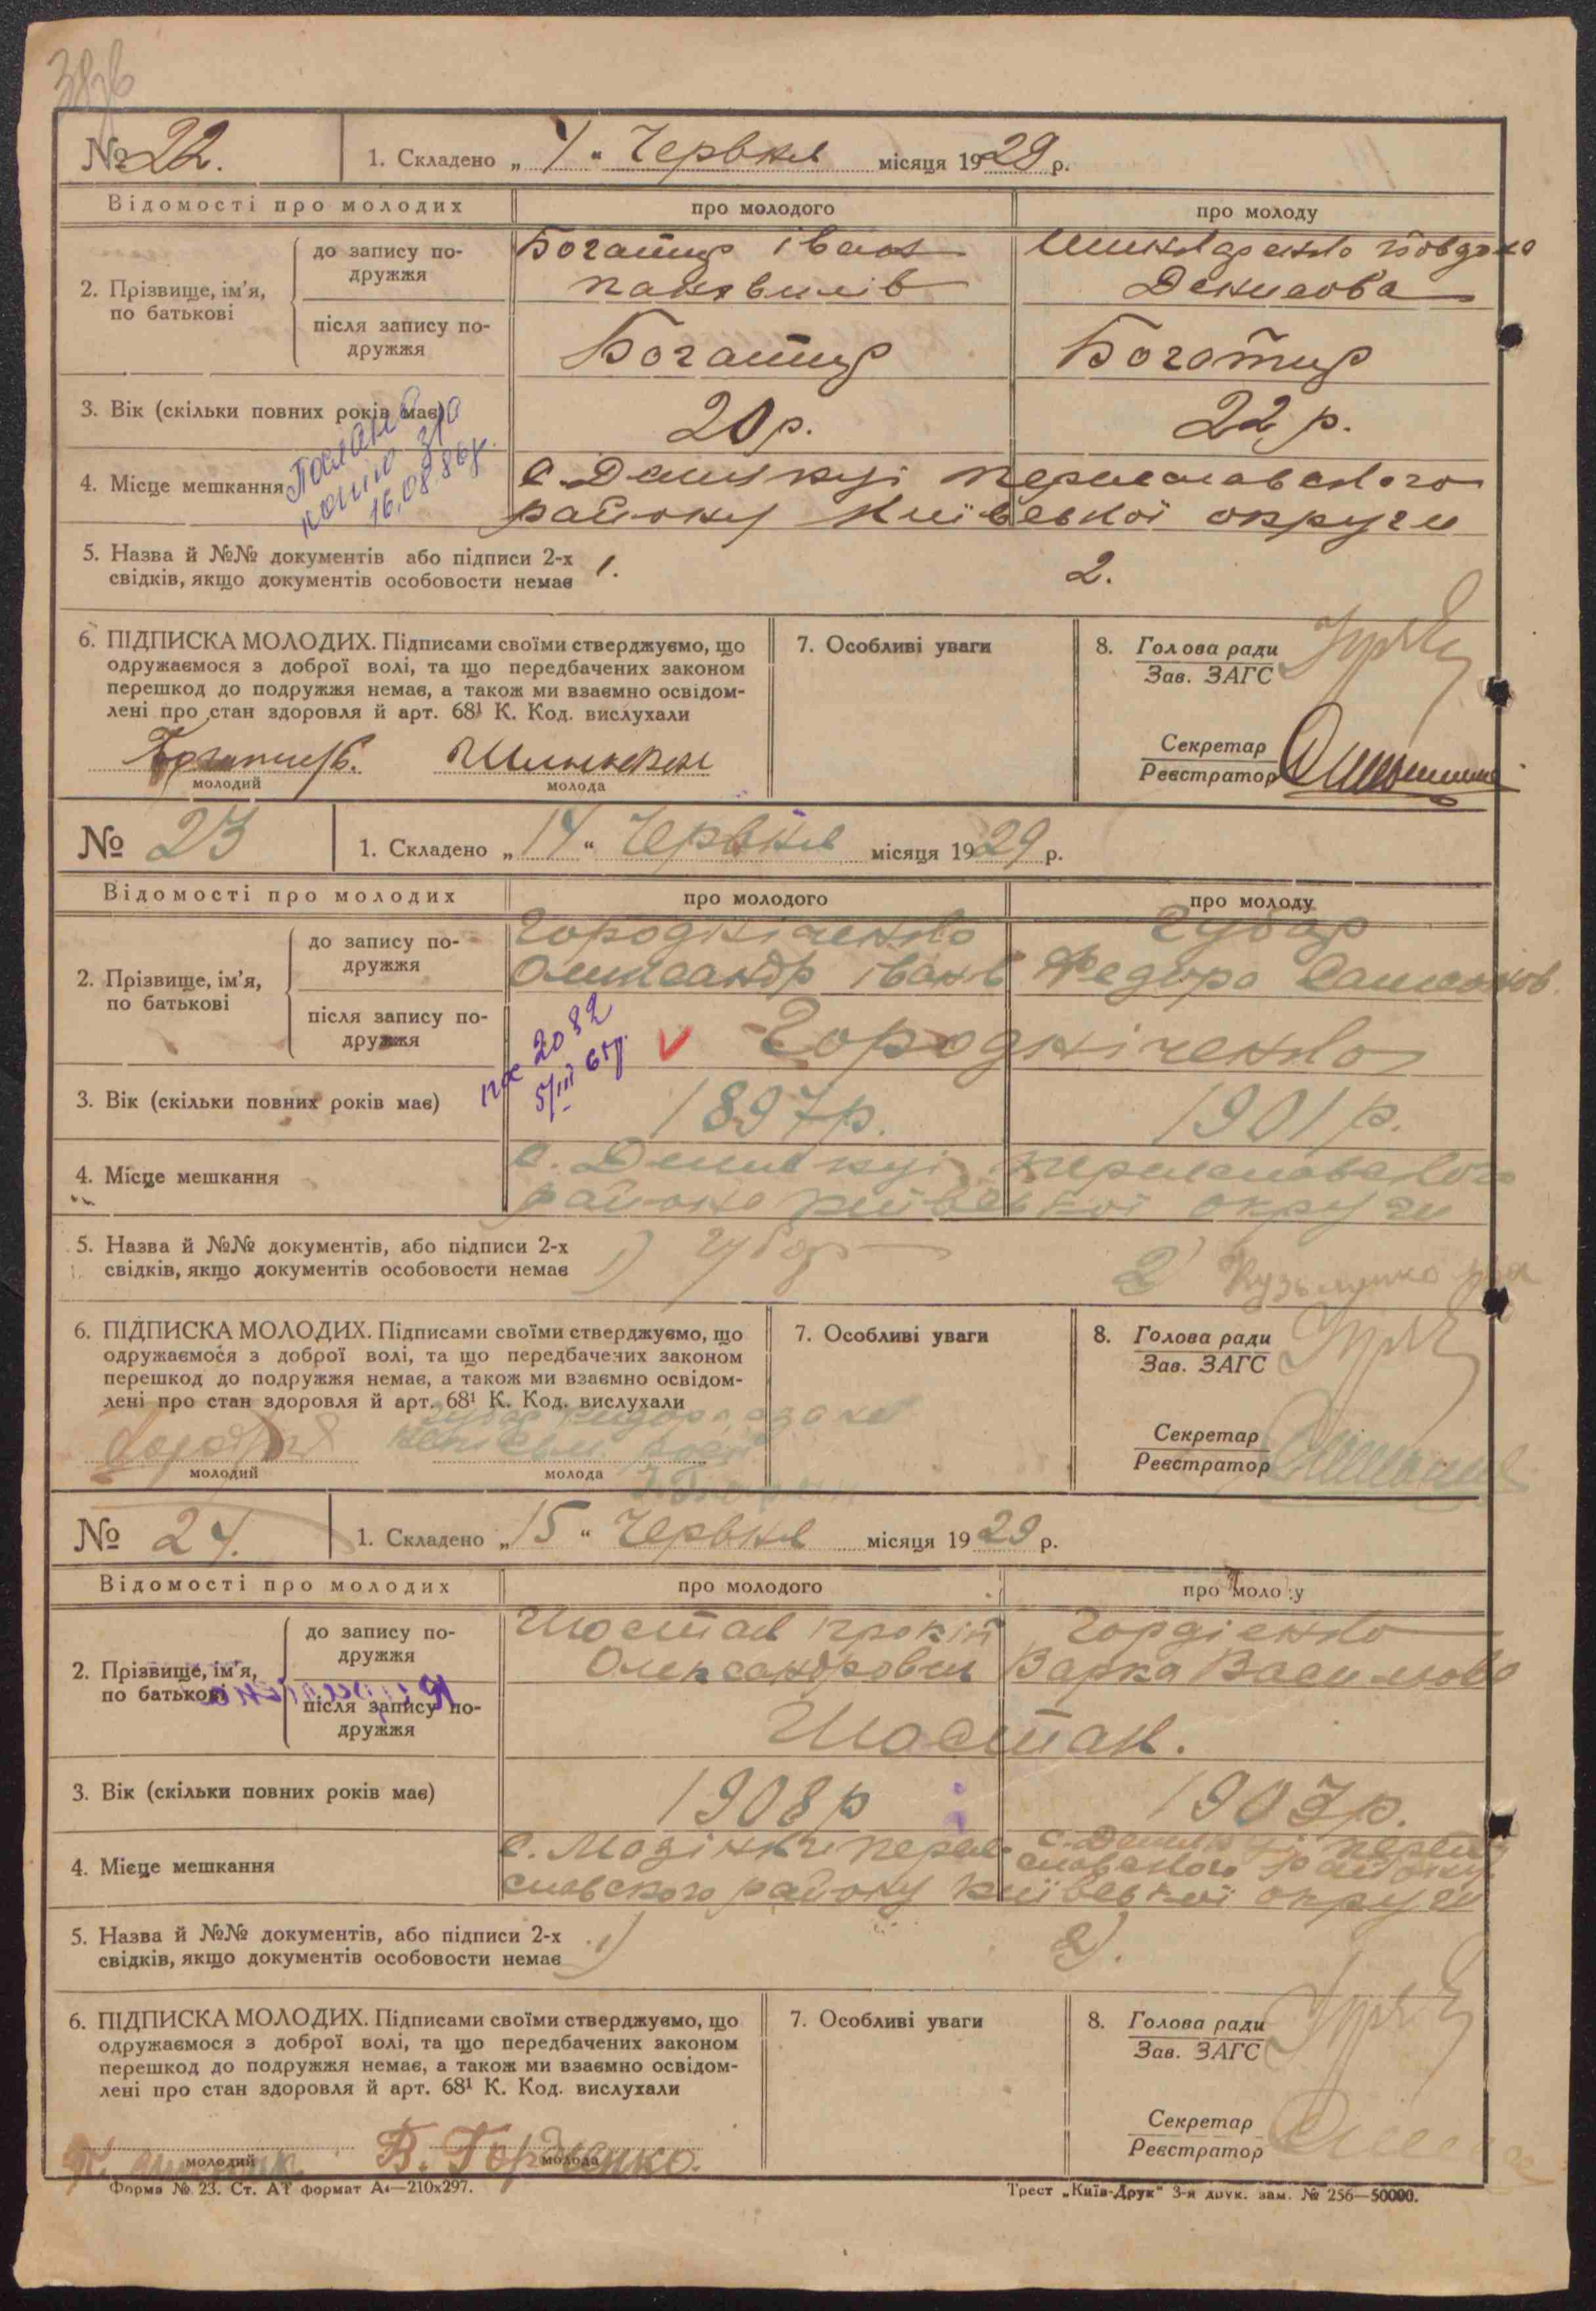 № 22. 1. Складено „ 7 “ Червня місяця 1929 р.
Відомості про молодих про молодого про молоду
2. Прізвище, ім’я, по батькові
до запису подружжя
Богатир Іван
Шинкаренко Явдоха
Денисова
після запису подружжя
Богатир Богатир
3. Вік (скільки повних років має) 20 р. 22 р.
Послано
копію
16.08.86р.
4. Місце мешкання с. Демянці Переяславського
району Київської округи
5. Назва й №№ документів або підписи 2-х 1. 2.
свідків, якщо документів особовости немає
6. ПІДПИСКА МОЛОДИХ. Підписами своїми стверджуємо, що
одружаємося з доброї волі, та що передбачених законом
перешкод до подружжя немає, а також ми взаємно освідом-
лені про стан здоровля й арт. 68¹ К. Код. вислухали
молодий молода
7. Особливі уваги
8. Голова ради
Зав. ЗАГС
Секретар
Реєстратор
№ 23 1. Складено „ 14 “ Червня місяця 1929 р.
Відомості про молодих про молодого про молоду
2. Прізвище, ім’я, по батькові
до запису подружжя
Городніченко Губар
Олександр Іванів Федора
після запису подружжя
Городніченко
2082
5/III 61р.
3. Вік (скільки повних років має) 1897р. 1901 р.
4. Місце мешкання с. Демянці Переяславського
району Київської округи
5. Назва й №№ документів, або підписи 2-х 1) Губар 2)
свідків, якщо документів особовости немає
6. ПІДПИСКА МОЛОДИХ. Підписами своїми стверджуємо, що
одружаємося з доброї волі, та що передбачених законом
перешкод до подружжя немає, а також ми взаємно освідом-
лені про стан здоровля й арт. 68¹ К. Код. вислухали
молодий молода
7. Особливі уваги
8. Голова ради
Зав. ЗАГС
Секретар
Реєстратор
№ 24. 1. Складено „ 15 “ Червня місяця 1929 р.
Відомості про молодих про молодого про молоду
2. Прізвище, ім’я, по батькові
до запису подружжя
Шостак Прокіп Гордієнко
Олександрович Варка Василова
після запису подружжя
Шостак.
3. Вік (скільки повних років має) 1908р
4. Місце мешкання
с. Мазінки Переяславского району Київської округи
с. Демянці Переяславского району
5. Назва й №№ документів, або підписи 2-х 1) 2).
свідків, якщо документів особовости немає
6. ПІДПИСКА МОЛОДИХ. Підписами своїми стверджуємо, що
одружаємося з доброї волі, та що передбачених законом
перешкод до подружжя немає, а також ми взаємно освідом-
лені про стан здоровля й арт. 68¹ К. Код. вислухали
В. Гордієнко.
молодий молода
7. Особливі уваги
8. Голова ради
Зав. ЗАГС
Секретар
Реєстратор
Форма № 23. Ст. А¹ формат А₄—210х297. Трест „Київ-Друк“ 3-я друк. зам. № 256—50000.